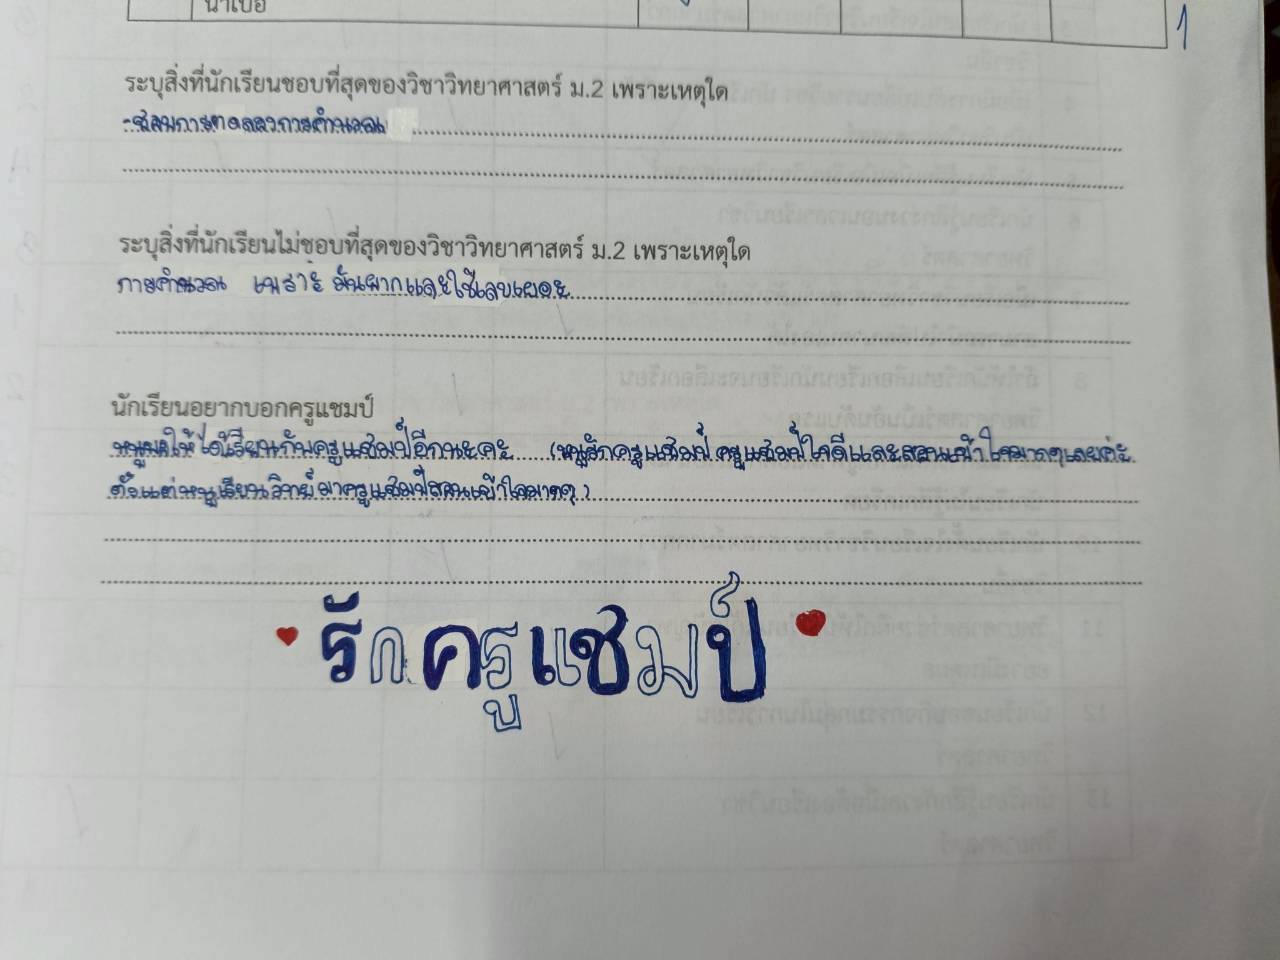 น่าเบื่อ
1
ระบุสิ่งที่นักเรียนชอบที่สุดของวิชาวิทยาศาสตร์ ม.2 เพราะเหตุใด
-ชอบการทดลองการคำนวณ
ระบุสิ่งที่นักเรียนไม่ชอบที่สุดของวิชาวิทยาศาสตร์ ม.2 เพราะเหตุใด
การคำนวณ เพราะ มันยากและใช้เลขเยอะ
นักเรียนอยากบอกครูแชมป์
ให้ได้เรียนกับครูแชมป์อีกนะคะ (หนูรักครูแชมป์ ครูแชมป์ใจดีและสอนเข้าใจมากๆเลยค่ะ
ตั้งแต่หนูเรียนวิทย์มาครูแชมป์สอนเข้าใจมากๆ)
รักครูแชมป์